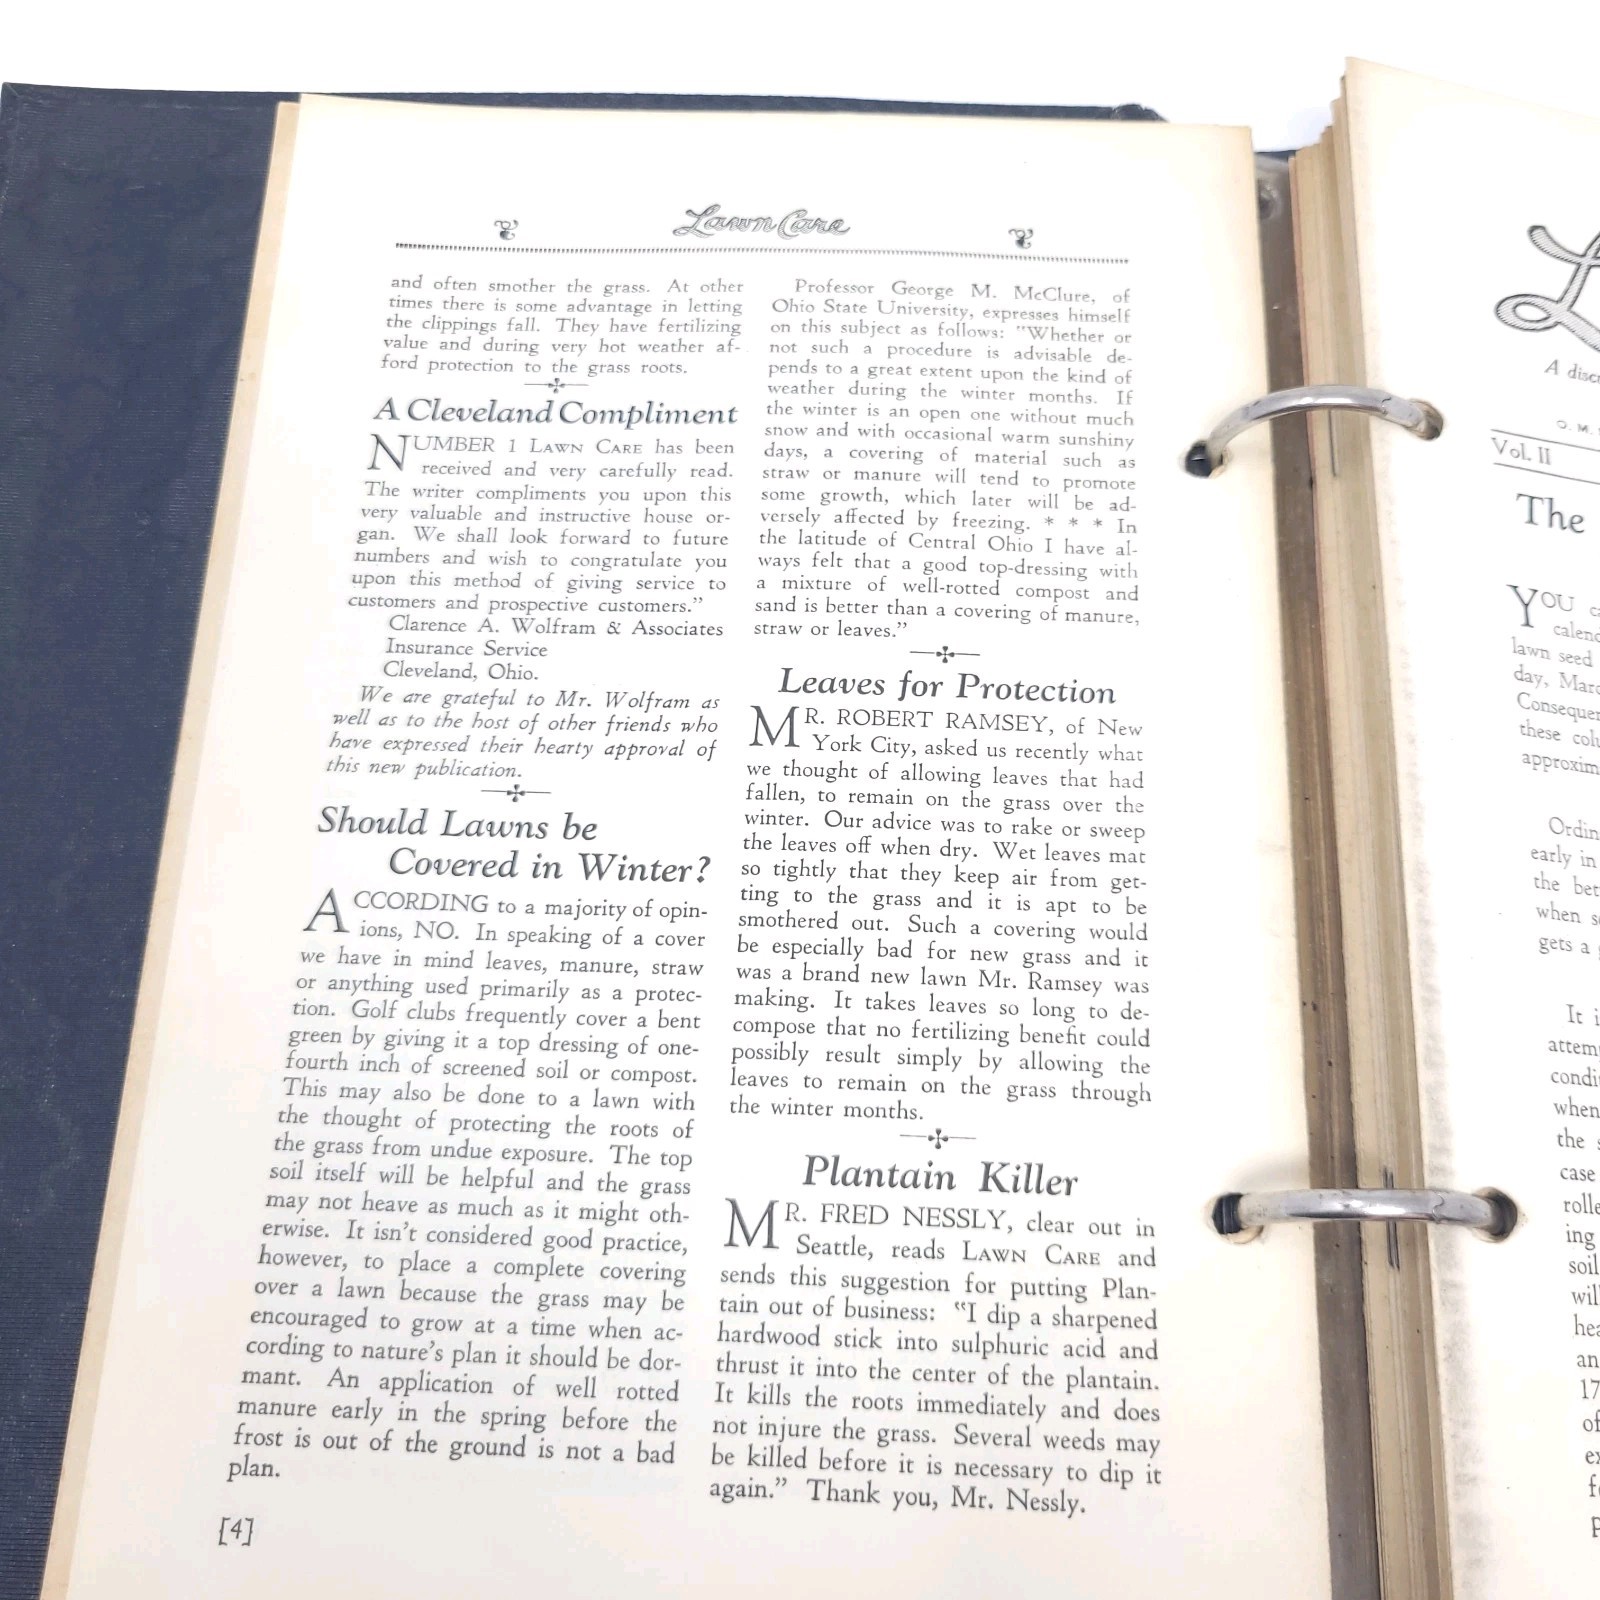 Lawn Care
and often smother the grass. At other
times there is some advantage in letting
the clippings fall. They have fertilizing
value and during very hot weather af-
ford protection to the grass roots.
A Cleveland Compliment
NUMBER 1 LAWN CARE has been
received and very carefully read.
The writer compliments you upon this
very valuable and instructive house or-
gan. We shall look forward to future
numbers and wish to congratulate you
upon this method of giving service to
customers and prospective customers.”
Clarence A. Wolfram & Associates
Insurance Service
Cleveland, Ohio.
We are grateful to Mr. Wolfram as
well as to the host of other friends who
have expressed their hearty approval of
this new publication.
Should Lawns be
Covered in Winter?
ACCORDING to a majority of opin-
ions, NO. In speaking of a cover
we have in mind leaves, manure, straw
or anything used primarily as a protec-
tion. Golf clubs frequently cover a bent
green by giving it a top dressing of one-
fourth inch of screened soil or compost.
This may also be done to a lawn with
the thought of protecting the roots of
the grass from undue exposure. The top
soil itself will be helpful and the grass
may not heave as much as it might oth-
erwise. It isn’t considered good practice,
however, to place a complete covering
over a lawn because the grass may be
encouraged to grow at a time when ac-
cording to nature’s plan it should be dor-
mant. An application of well rotted
manure early in the spring before the
frost is out of the ground is not a bad
plan.
[4]
Professor George M. McClure, of
Ohio State University, expresses himself
on this subject as follows: “Whether or
not such a procedure is advisable de-
pends to a great extent upon the kind of
weather during the winter months. If
the winter is an open one without much
snow and with occasional warm sunshiny
days, a covering of material such as
straw or manure will tend to promote
some growth, which later will be ad-
versely affected by freezing. * * * In
the latitude of Central Ohio I have al-
ways felt that a good top-dressing with
a mixture of well-rotted compost and
sand is better than a covering of manure,
straw or leaves.”
Leaves for Protection
MR. ROBERT RAMSEY, of New
York City, asked us recently what
we thought of allowing leaves that had
fallen, to remain on the grass over the
winter. Our advice was to rake or sweep
the leaves off when dry. Wet leaves mat
so tightly that they keep air from get-
ting to the grass and it is apt to be
smothered out. Such a covering would
be especially bad for new grass and it
was a brand new lawn Mr. Ramsey was
making. It takes leaves so long to de-
compose that no fertilizing benefit could
possibly result simply by allowing the
leaves to remain on the grass through
the winter months.
Plantain Killer
MR. FRED NESSLY, clear out in
Seattle, reads LAWN CARE and
sends this suggestion for putting Plan-
tain out of business: “I dip a sharpened
hardwood stick into sulphuric acid and
thrust it into the center of the plantain.
It kills the roots immediately and does
not injure the grass. Several weeds may
be killed before it is necessary to dip it
again.” Thank you, Mr. Nessly.
L
A
O. M.
Vol. II
The
YOU
lawn seed
day,
these
Ordin
early in
the
when
gets a
It
when
the
case
ing
soil
an
17